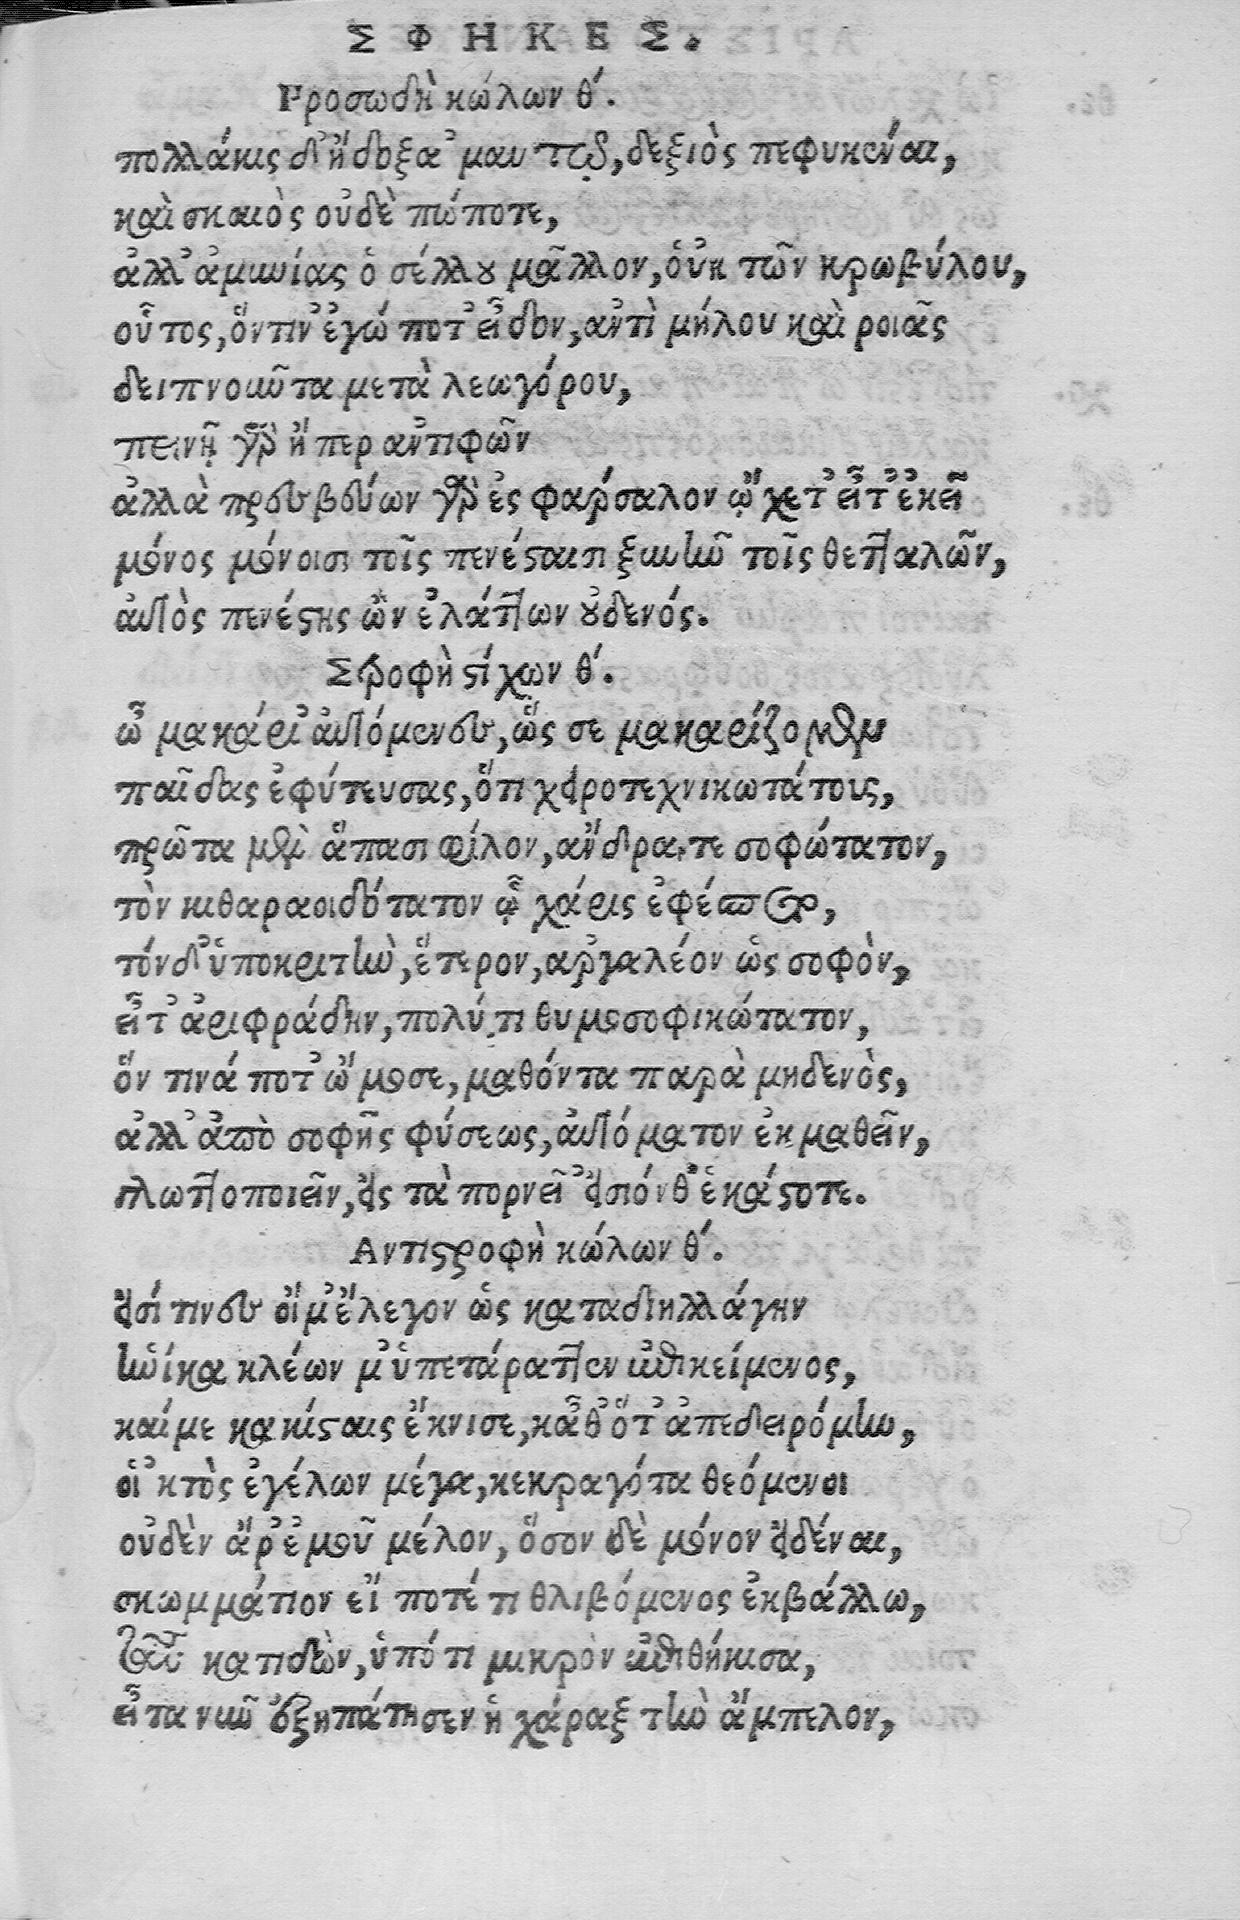 ΣΦΗΚΕΣ.
Προσωδὴ κώλων θ΄.
πολλάκις δ' ἤδοξα 'μαυτῷ, δεξιὸς πεφυκέναι,
καὶ σκαιὸς οὐδὲ πώποτε,
ἀλλ' ἀμυνίας ὁ σέλλου μᾶλλον, ὁὐκ τῶν κρωβύλου,
οὗτος, ὅντιν' ἐγώ ποτ' εἶδον, ἀντὶ μήλου καὶ ροιᾶς
δειπνοιῶτα μετὰ λεωγόρου,
πεινῇ γὰρ ἥπερ ἀντιφῶν
ἀλλὰ πρεσβεύων γὰρ ἐς φαρσαλον ᾤχετ' εἶτ' ἐκεῖ
μόνος μόνοισι τοῖς πενέσταισι ξυνῆν τοῖς θετταλῶν,
αὐτὸς πενέστης ὢν ἐλάττων οὐδενός.
Στροφὴ στίχων θ΄.
ὦ μακάρι' αὐτόμενες, ὥς σε μακαρίζομεν
παῖδας ἐφύτευσας, ὅτι χειροτεχνικωτάτους,
πρῶτα μὲν ἅπασι φίλον, ἄνδρα, τε σοφώτατον,
τὸν κιθαραοιδότατον ᾧ χάρις ἐφέσπετο,
τόνδ' ὑποκριτὴν, ἕτερον, ἀργαλέον ὡς σοφὸν,
εἶτ' ἀριφράδην, πολύ τι θυμοσοφικώτατον,
ὅν τινά ποτ' ὤμοσε, μαθόντα παρὰ μηδενὸς,
ἀλλ' ἀπὸ σοφῆς φύσεως, αὐτόματον ἐκμαθεῖν,
γλωττοποιεῖν, εἰς τὰ πορνεῖ' εἰσιόνθ' ἑκάστοτε.
Αντιστροφὴ κώλων θ΄.
εἰσί τινες οἵ μ' ἔλεγον ὡς καταδιηλλάγην
ἡνίκα κλέων μ' ὑπετάραττεν ἐπικείμενος,
καί με κακίσταις ἔκνισε, κᾆθ' ὅτ' ἀπεδειρόμην,
οἱ 'κτὸς ἐγέλων μέγα, κεκραγότα θεόμενοι
οὐδὲν ἄρ' ἐμοῦ μέλον, ὅσον δὲ μόνον εἰδέναι,
σκωμμάτιον εἴ ποτέ τι θλιβόμενος ἐκβάλλω,
ταῦτα κατιδὼν, ὑπό τι μικρὸν ἐπιθήκισα,
εἶτα νῦν ἐξηπάτησεν ἡ χάραξ τὴν ἄμπελον,